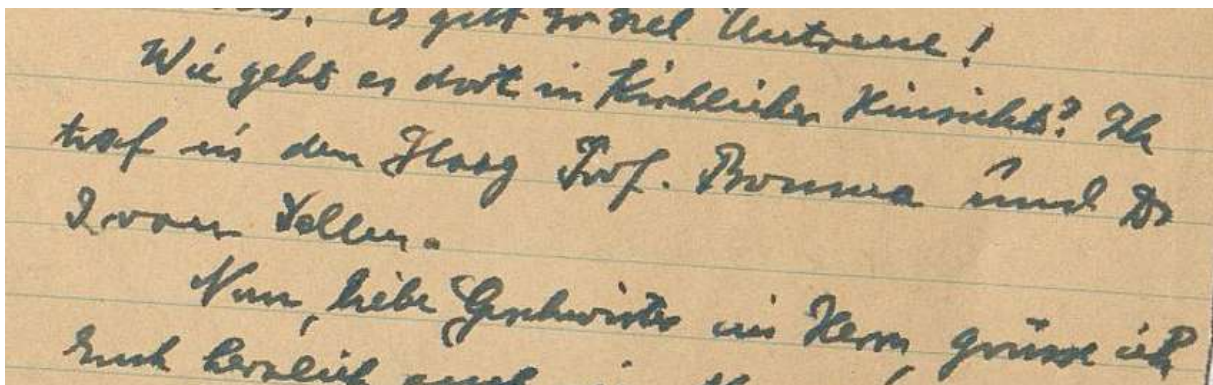 es gibt so viel Untreue!
Wie geht es dort in Kirchlicher Hinsicht? Ich
traf in den Haag Prof. Bouma und Dr
J. van Sellen.
Nun, liebe Geschwister im Herrn, grüsse ich
Euch herzlich auch